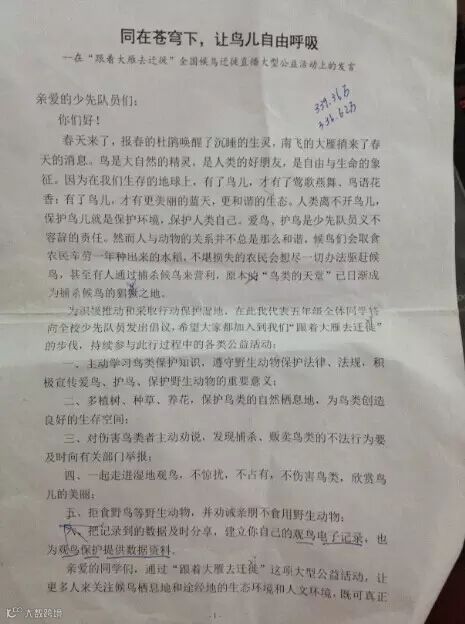 同在苍穹下，让鸟儿自由呼吸
—在“跟着大雁去迁徙”全国候鸟迁徙直播大型公益活动上的发言
339.36万
336.62万
亲爱的少先队员们：
你们好！
春天来了，报春的杜鹃唤醒了沉睡的生灵，南飞的大雁捎来了春
天的消息。鸟是大自然的精灵，是人类的好朋友，是自由与生命的象
征。因为在我们生存的地球上，有了鸟儿，才有了莺歌燕舞、鸟语花
香；有了鸟儿，才有更美丽的蓝天，更和谐的生态。人类离不开鸟儿，
保护鸟儿就是保护环境，保护人类自己。爱鸟、护鸟是少先队员义不
容辞的责任。然而人与动物的关系并不总是那么和谐。候鸟们会取食
农民辛劳一年种出来的水稻，不堪损失的农民会想尽一切办法驱赶候
鸟，甚至有人通过捕杀候鸟来营利，原本的“鸟类的天堂”已日渐成
为捕杀候鸟的猖獗之地。
为积极推动和采取行动保护湿地，在此我代表五年级全体同学
向全校少先队员发出倡议，希望大家都加入到我们“跟着大雁去迁徙”
的步伐，持续参与此行过程中的各类公益活动：
一、主动学习鸟类保护知识，遵守野生动物保护法律、法规，积
极宣传爱鸟、护鸟、保护野生动物的重要意义；
二、多植树、种草、养花，保护鸟类的自然栖息地，为鸟类创造
良好的生存空间；
三、对伤害鸟类者主动劝说，发现捕杀、贩卖鸟类的不法行为要
及时向有关部门举报；
四、一起走进湿地观鸟，不惊扰，不占有，不伤害鸟类，欣赏鸟
儿的美丽；
五、拒食野鸟等野生动物，并劝诫亲朋不食用野生动物；
六、把记录到的数据及时分享，建立你自己的观鸟电子记录，也
为观鸟保护提供数据资料。
亲爱的同学们，通过“跟着大雁去迁徙”这项大型公益活动，让
更多人来关注候鸟栖息地和途经地的生态环境和人文环境，既可真正
- 1 -
大数跨境